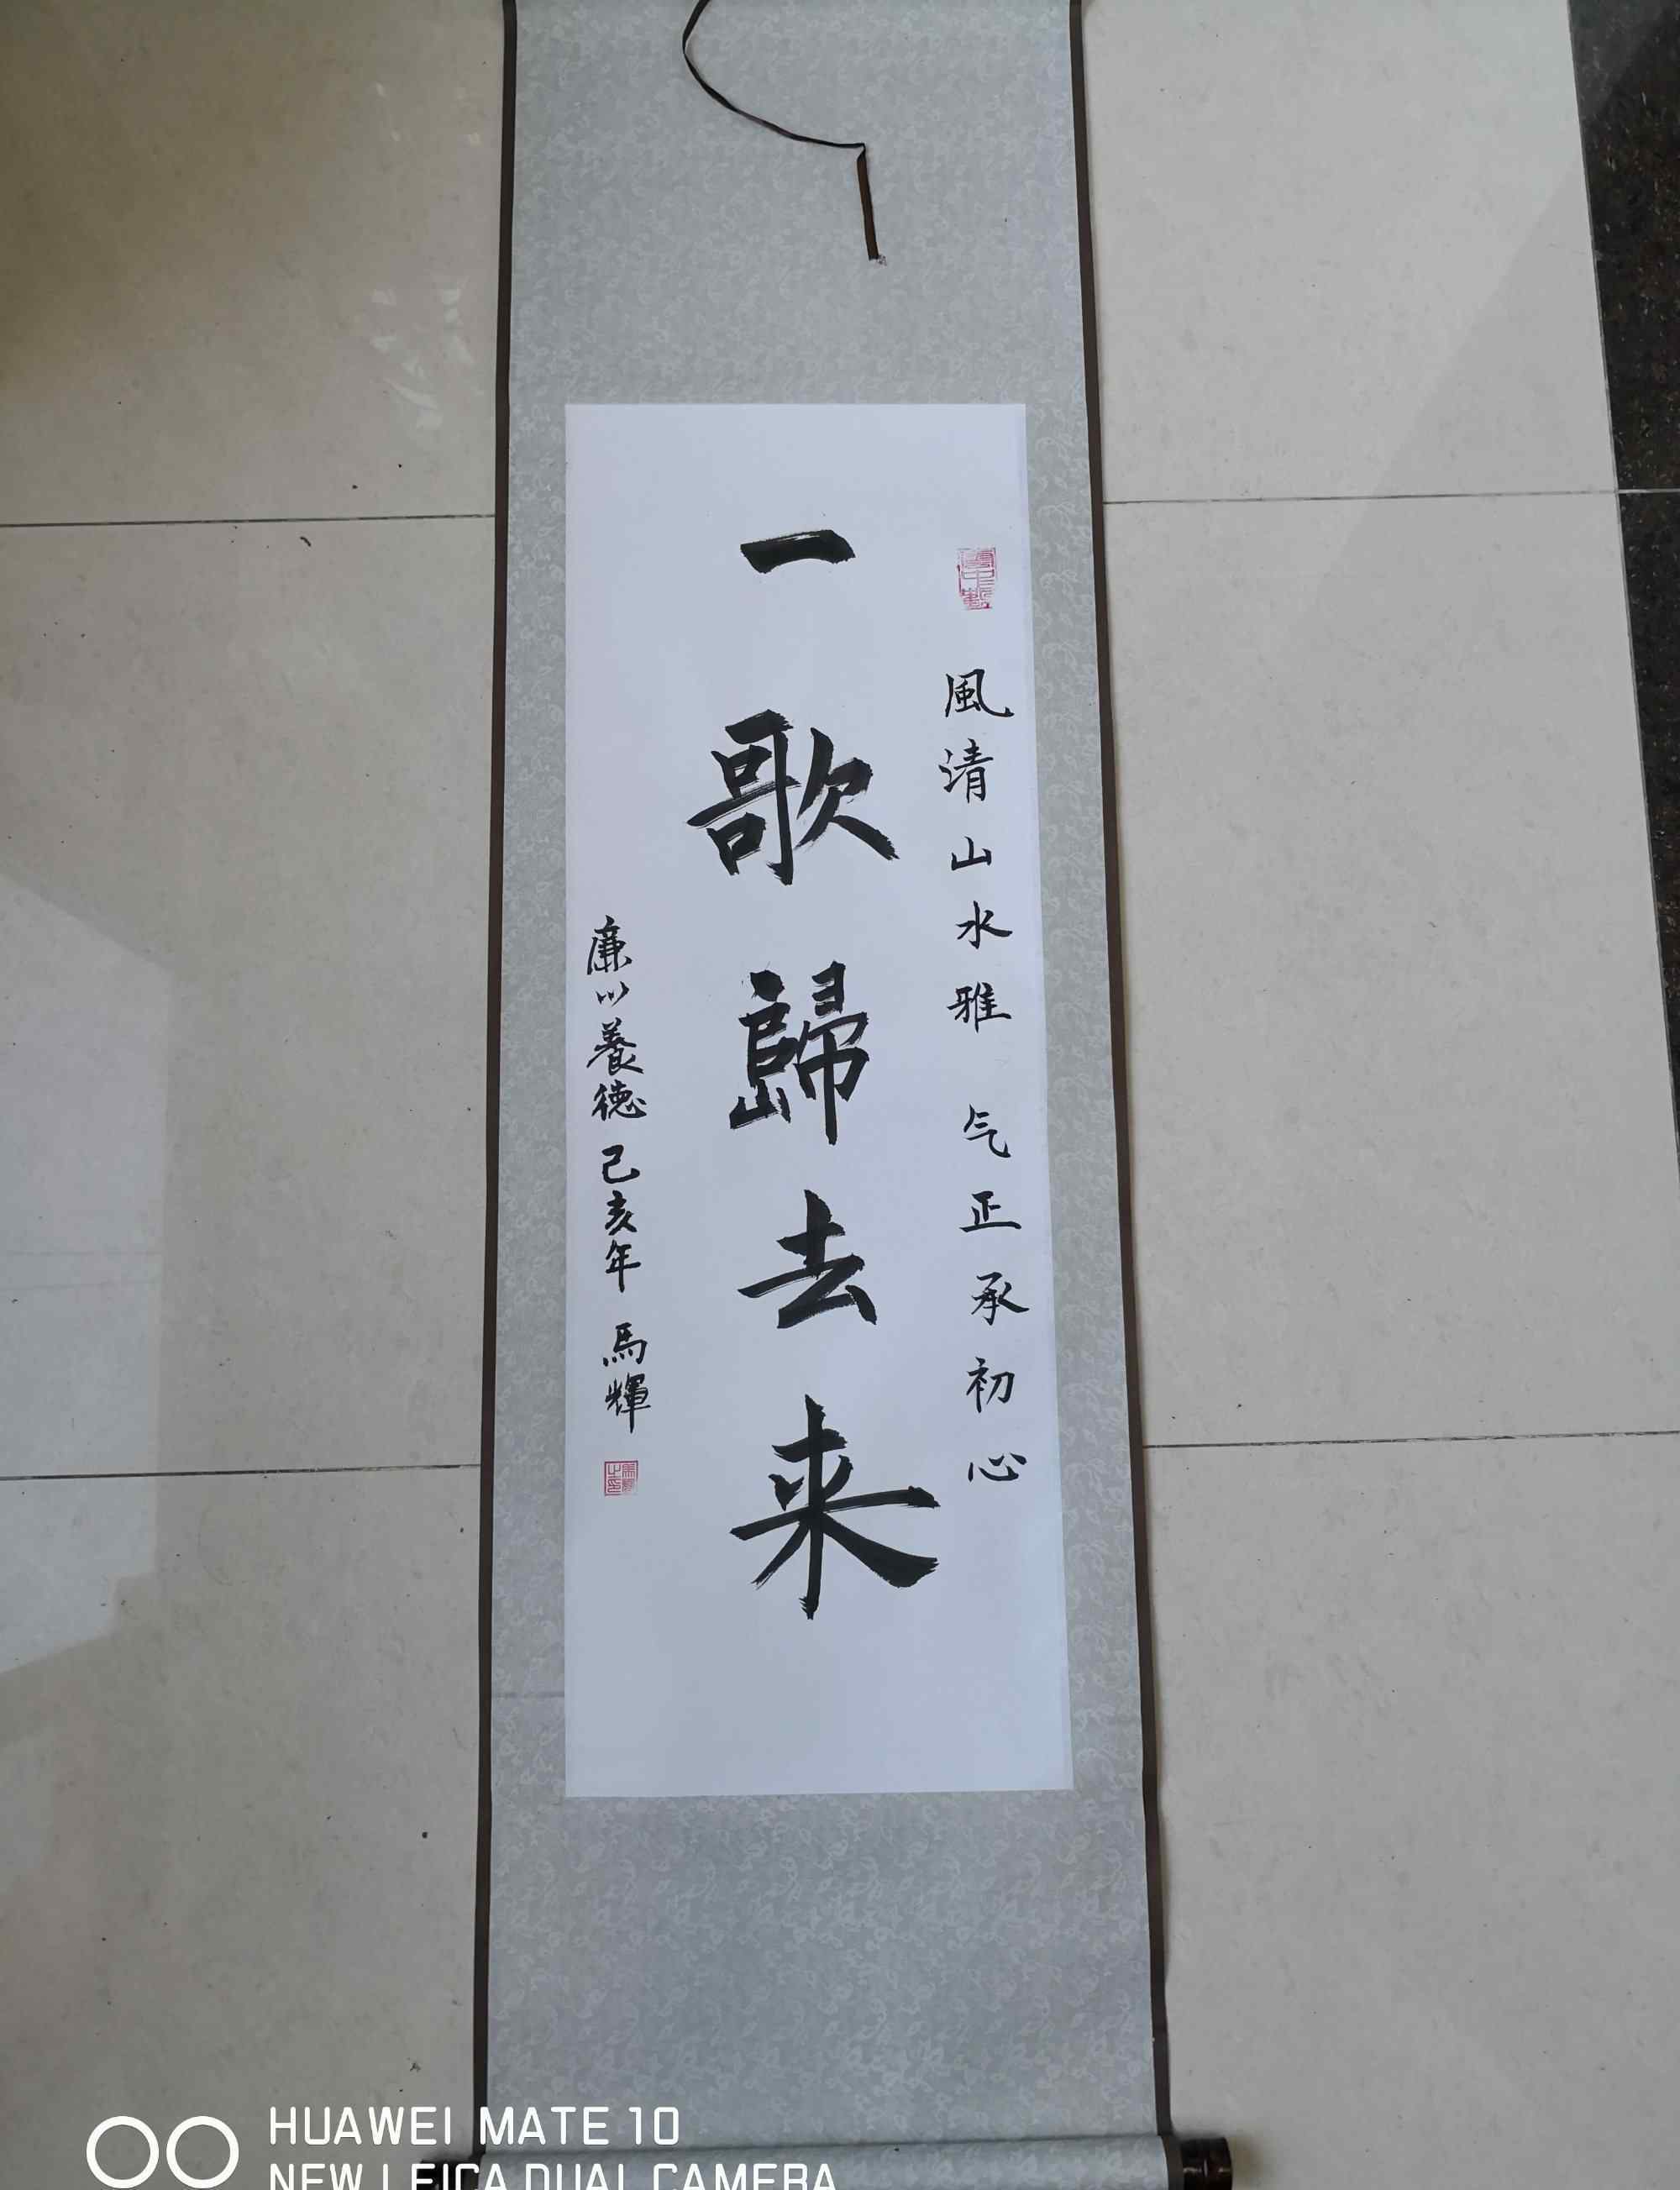 風清山水雅 气正承初心
一歌歸去来
廉以養德 己亥年 馬輝
HUAWEI MATE 10
NEW LEICA DUAL CAMERA